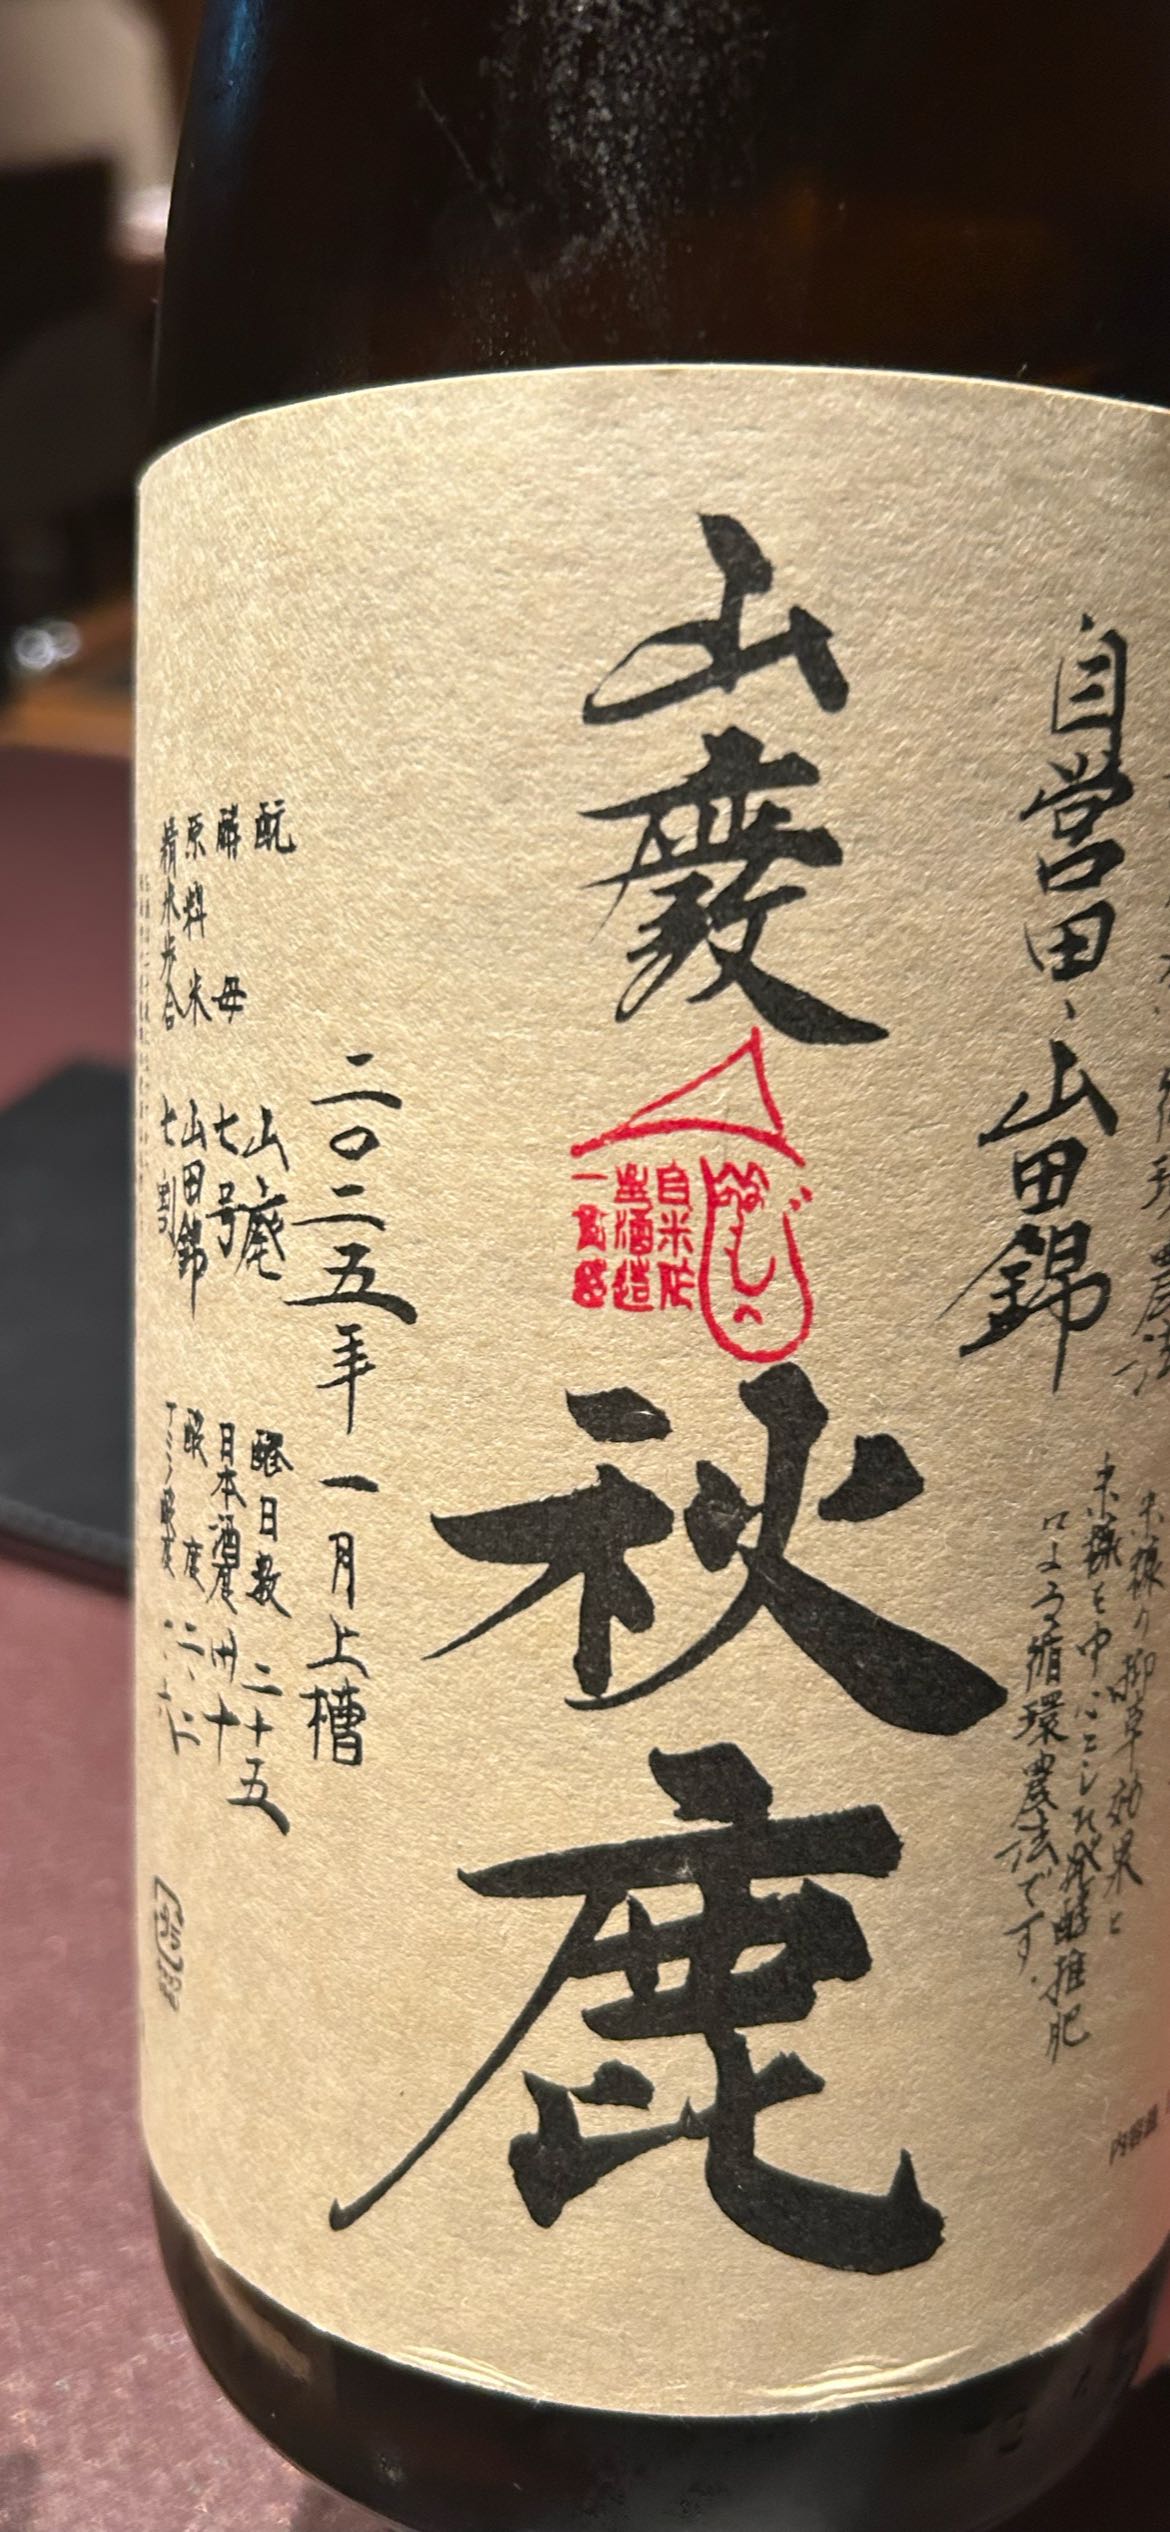 自営田、山田錦
米糠の抑草効果と
米糠を中心にした発酵堆肥
による循環農法です。
山廃
秋鹿
あきしか
自米作
生酒造
一貫
二〇二五年一月上槽
酛 山廃 醪日数 二十五
酵母 七号 日本酒度 十
原料米 山田錦 酸度 二、
精米歩合 七割 アミノ酸度 一、六
内容量